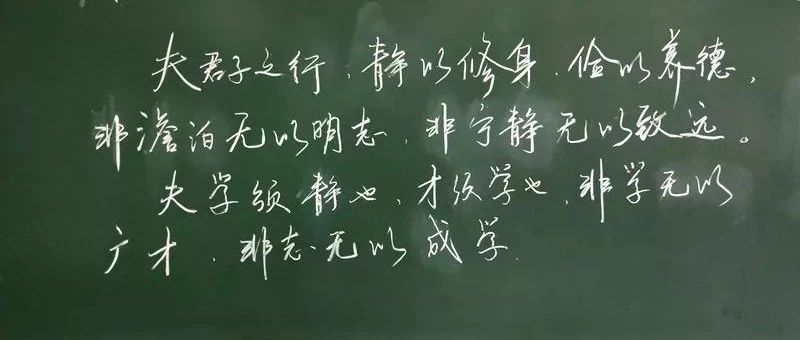 夫君子之行,静以修身,俭以养德,
非澹泊无以明志,非宁静无以致远。
夫学须静也,才须学也,非学无以
广才,非志无以成学.